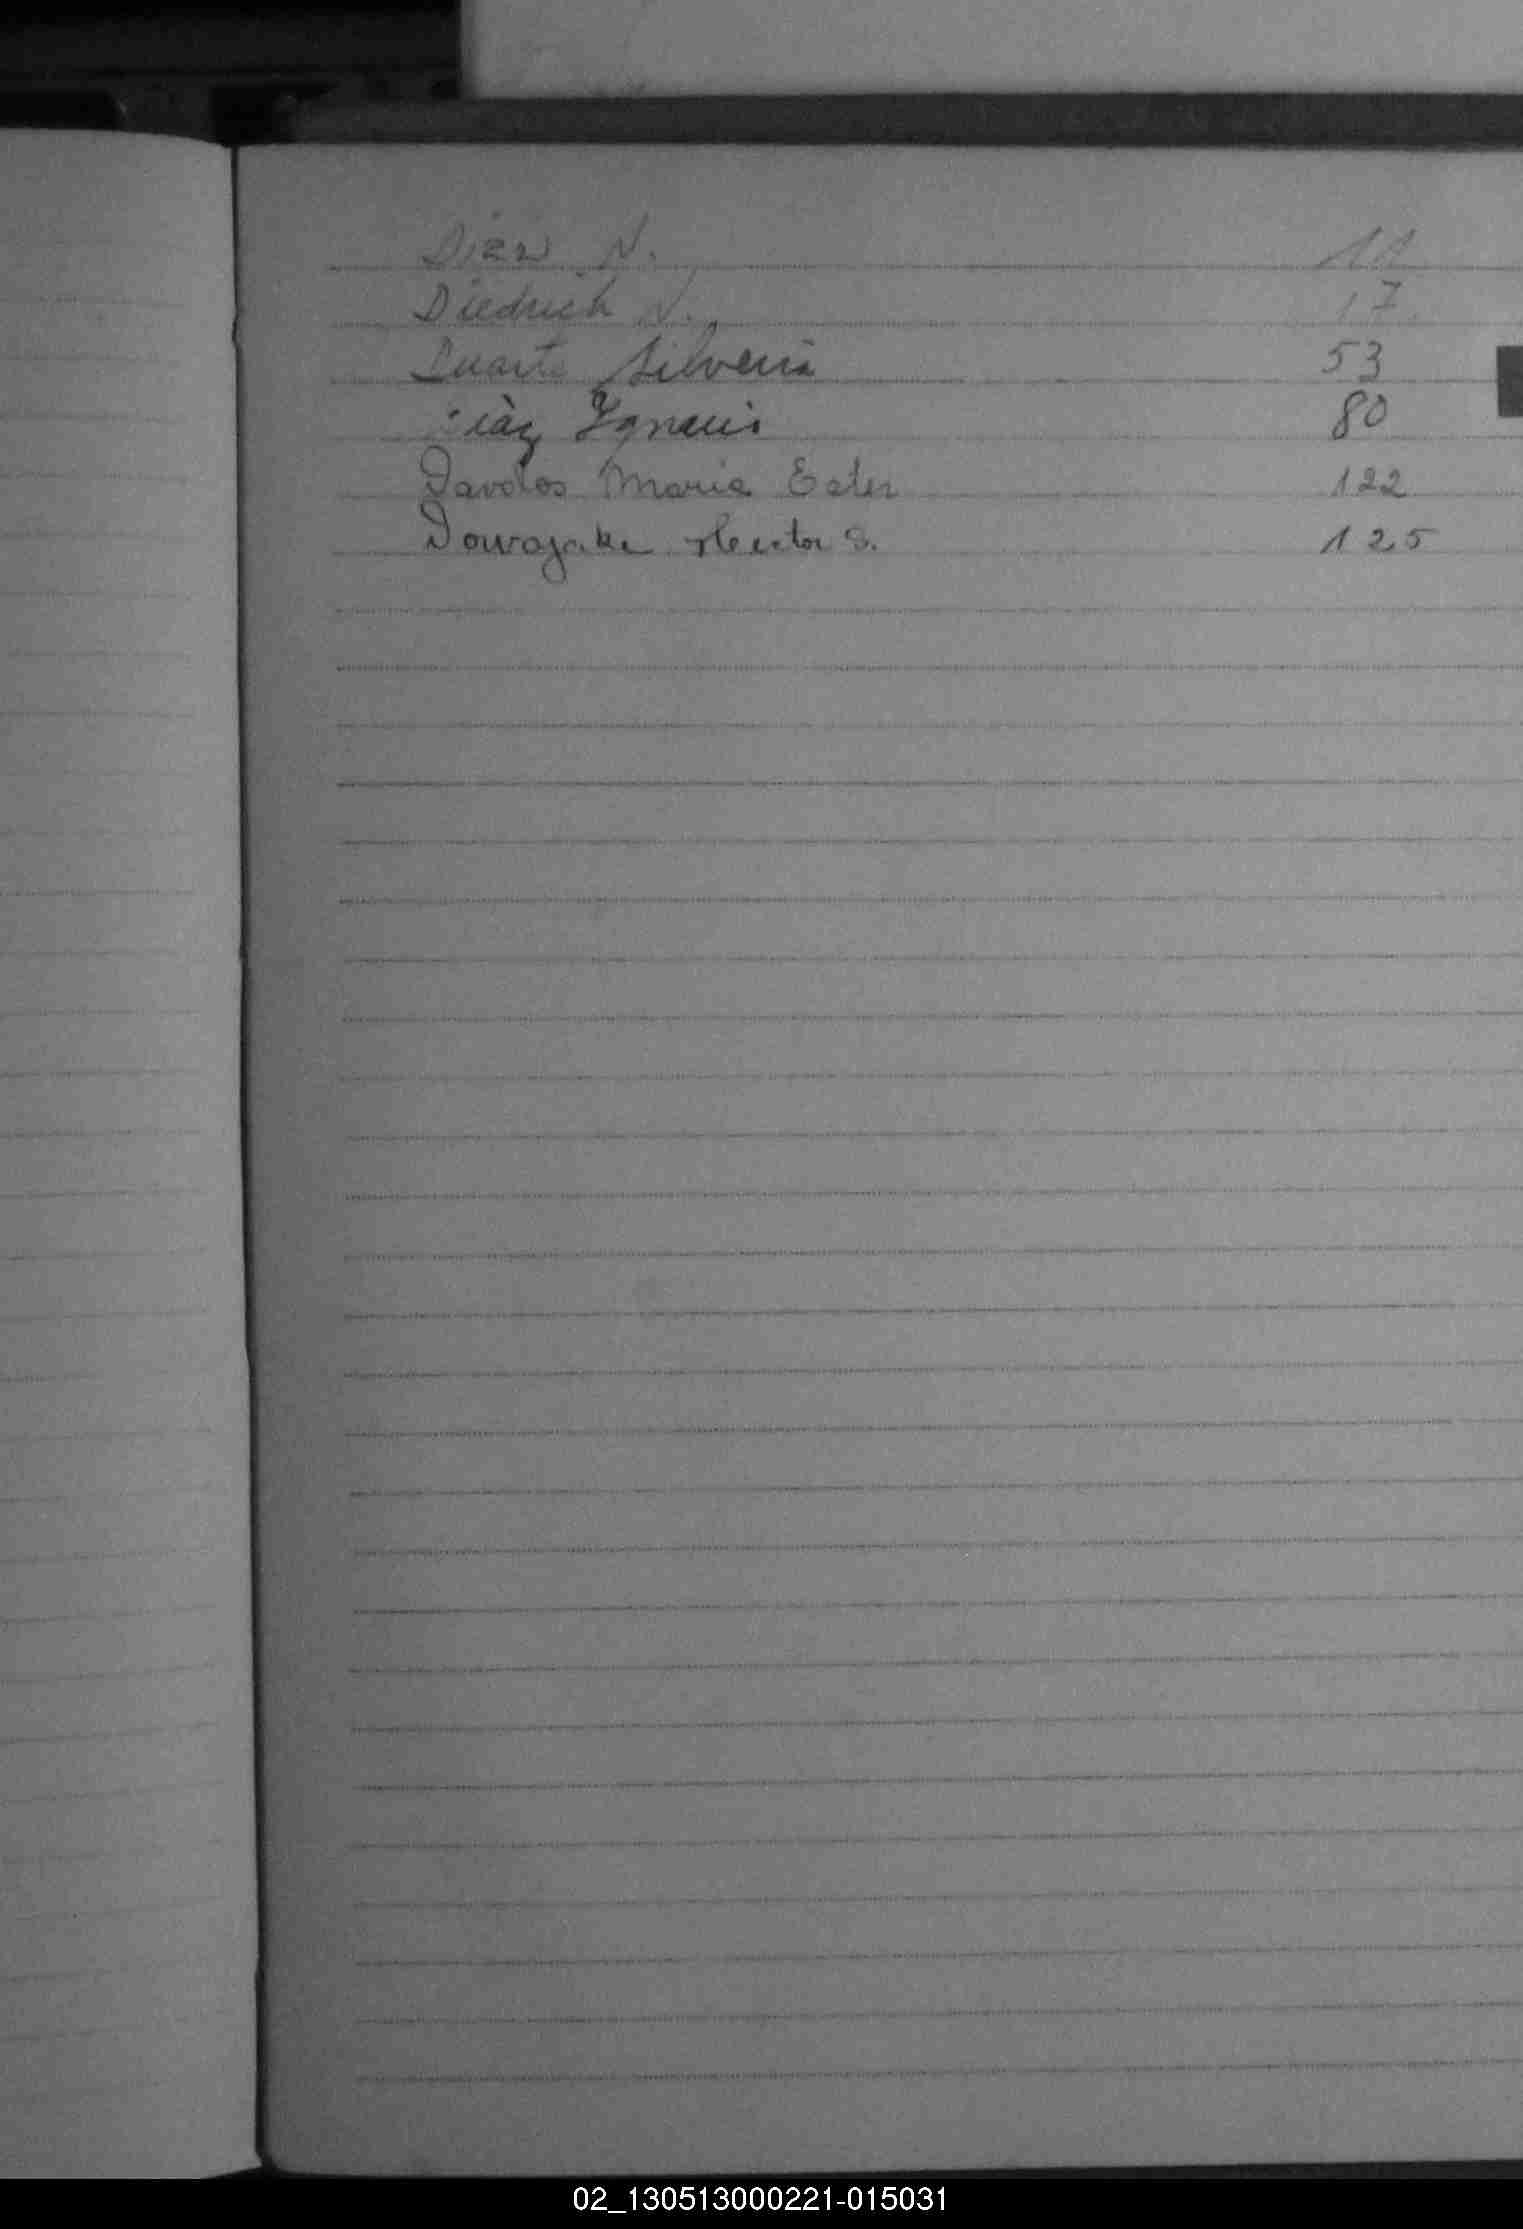 N. 11
Diedrich N. 17
Duarte Silveria 53
Diaz Ignacio 80
Davalos Maria Ester 122
Hector S. 125
02_130513000221-015031